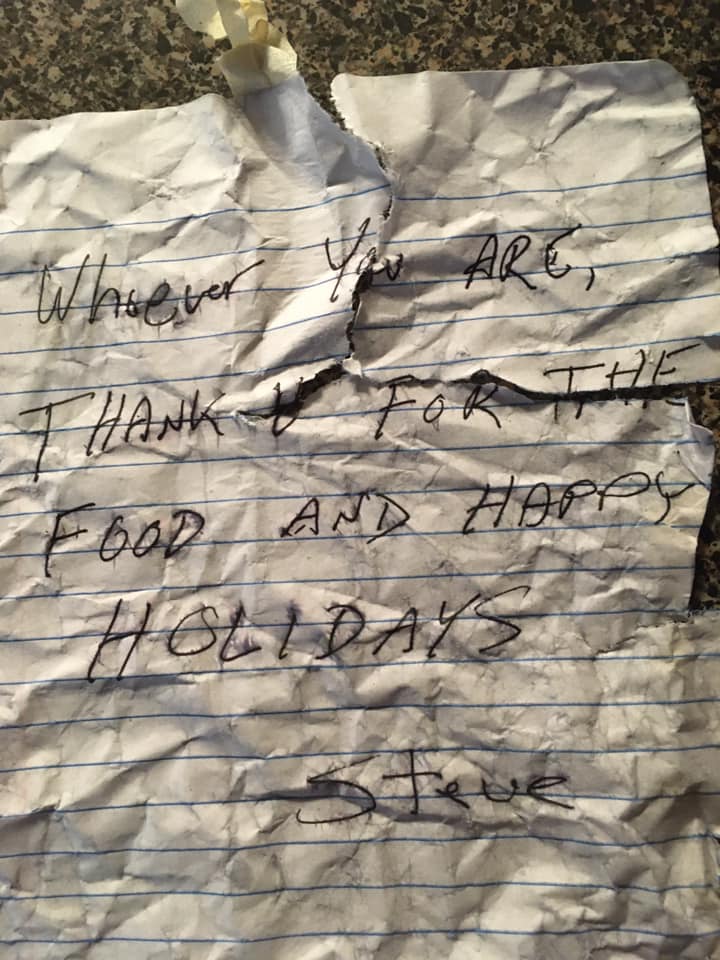 Whoever You ARE,
THANK U FOR THE
FOOD AND HAPPY
HOLIDAYS
Steve